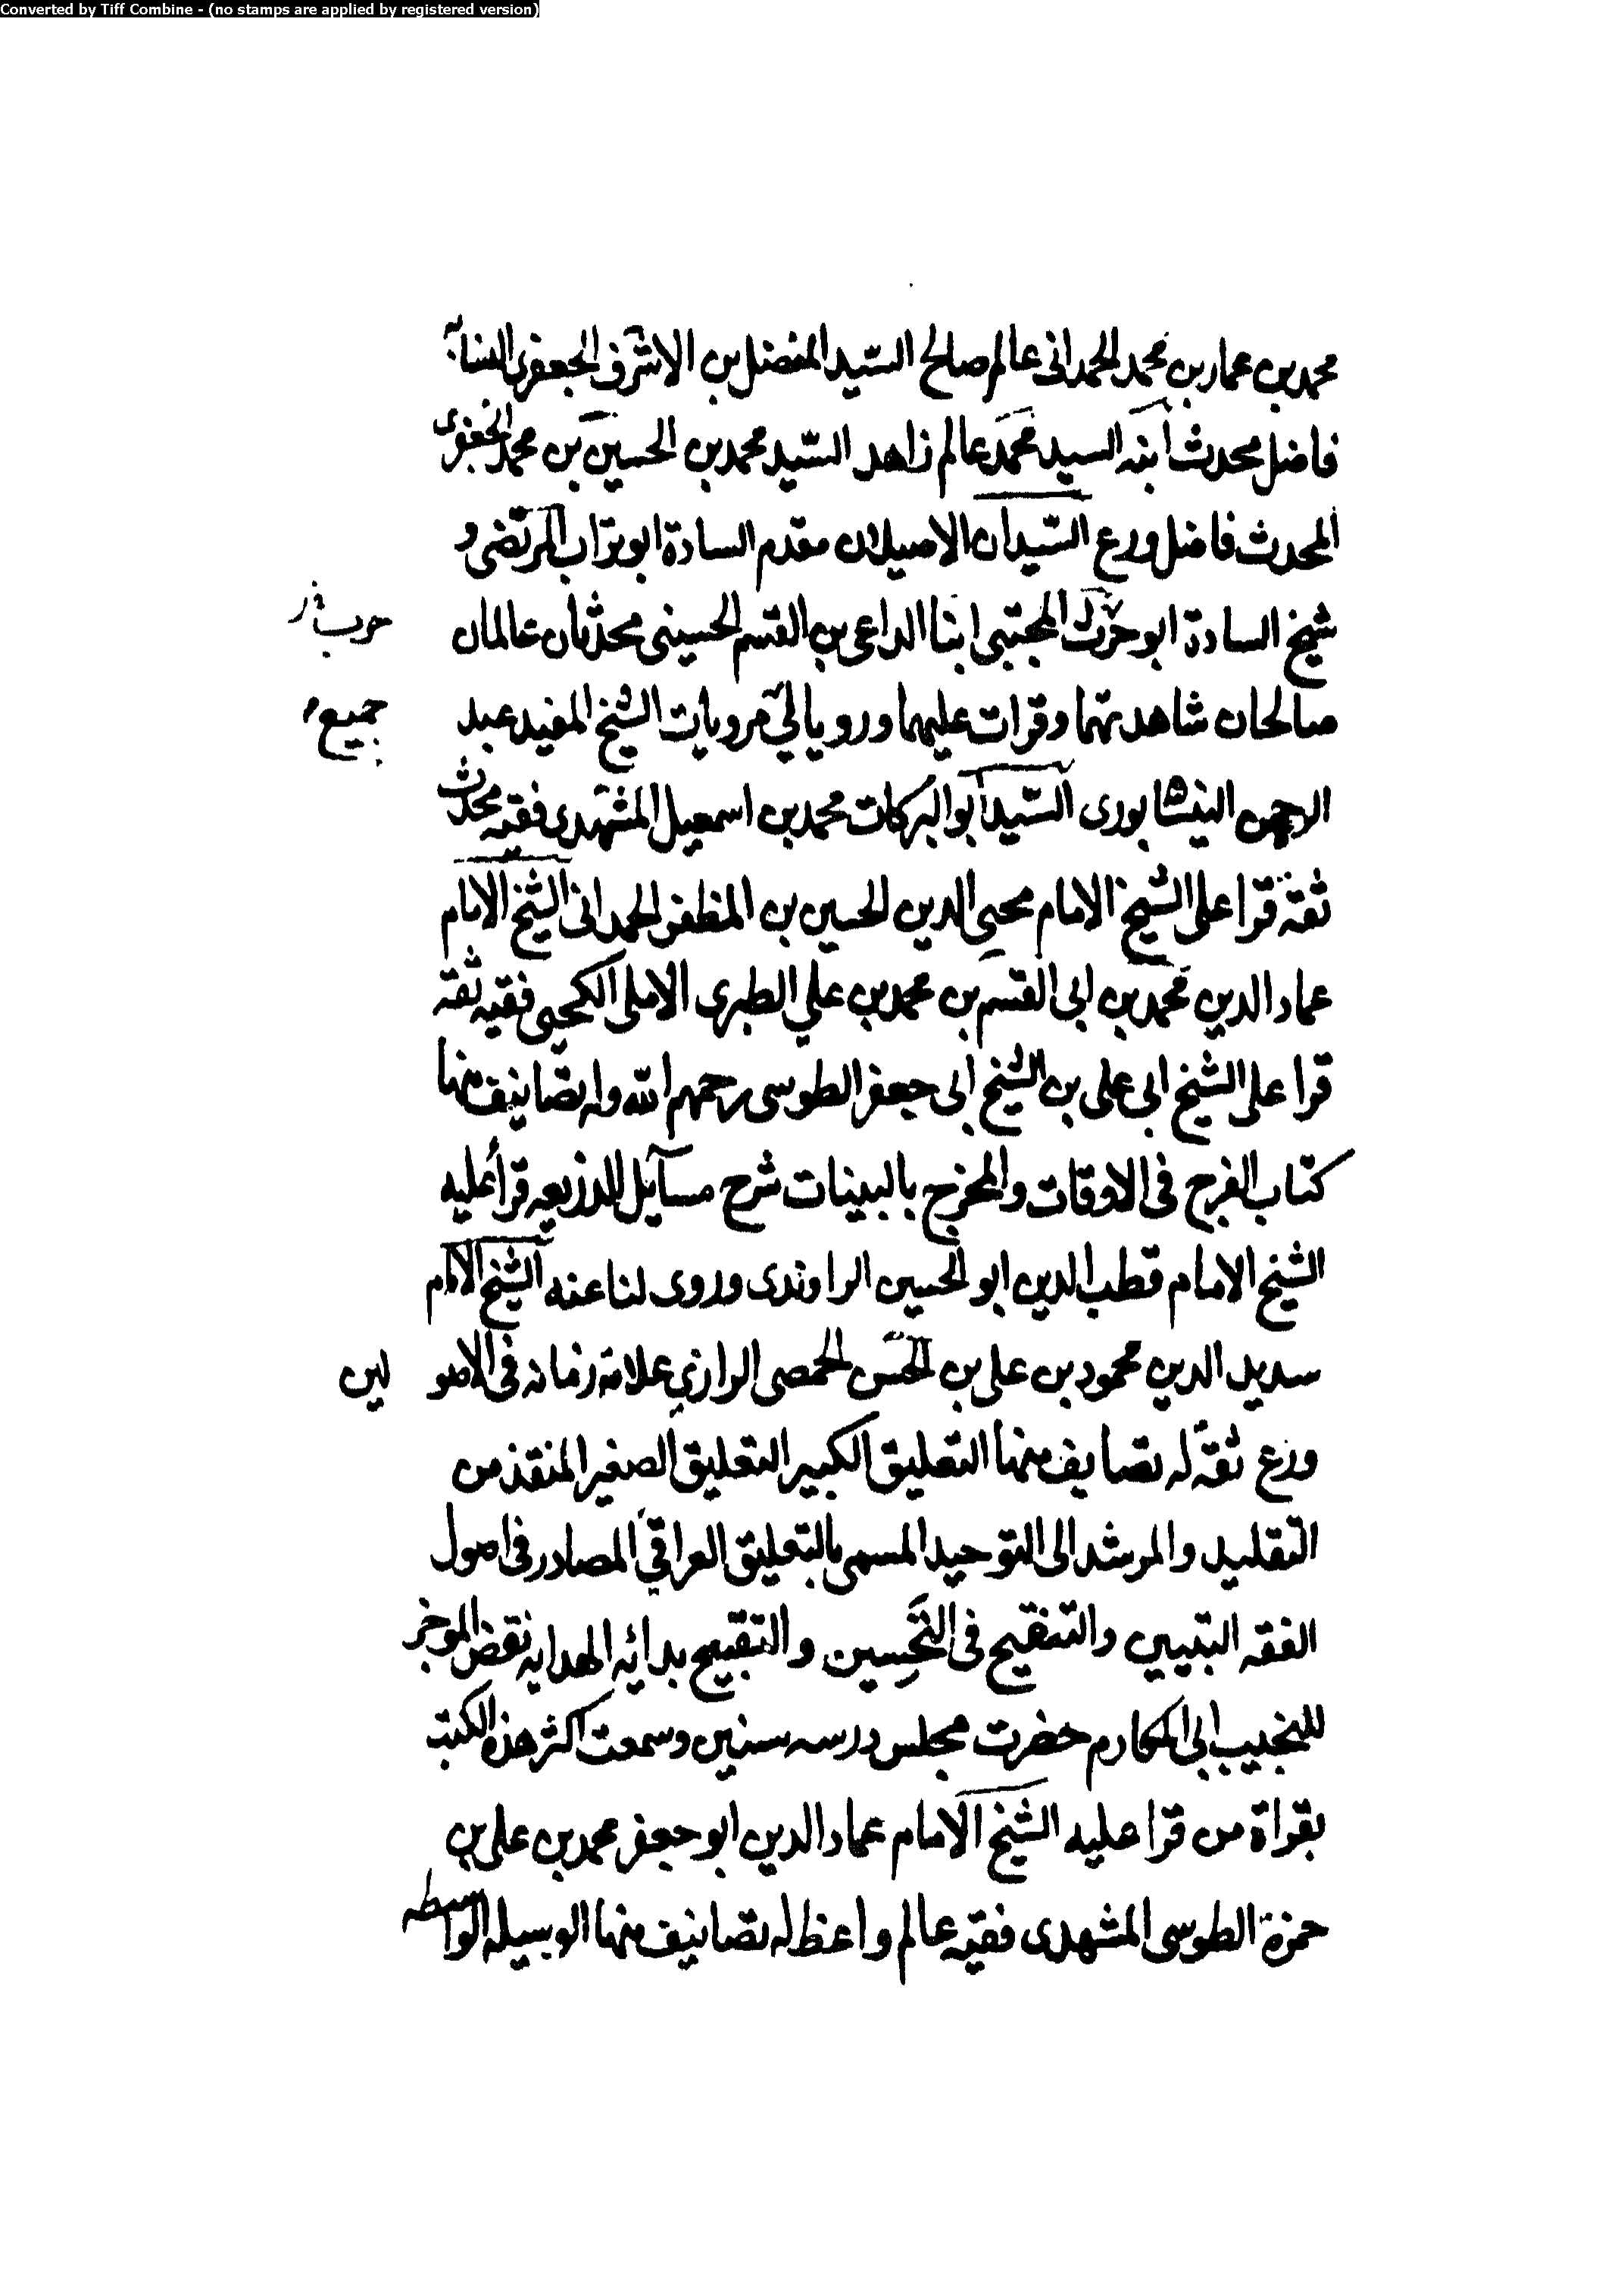 Converted by Tiff Combine - (no stamps are applied by registered version)
محمد بن عمار بن محمد الحمدانى عالم صالح السيد المفضل بن الاشرف الجعفرى النسابه
فاضل محدث ابنه السيد محمد عالم زاهد السيد محمد بن الحسين بن محمد الجعفرى
المحدث فاضل ورع السيدان الاصيلان مقدم السادة ابو تراب المرتضى و
شيخ السادة ابو حرب المجتبى ابنا الداعى بن القسم الحسينى محدثان عالمان
حرب
صالحان شاهدتهما وقرات عليهما ورويا لي مرويات الشيخ المفيد عبد
جميع
الرحمن النيشابورى السيد ابو البركات محمد بن اسمعيل المشهدى فقيه محدث
ثقة قرا على الشيخ الامام محيى الدين الحسين بن المظفر الحمدانى الشيخ الامام
عماد الدين محمد بن ابى القسم بن محمد بن علي الطبرى الاملى الكجى فقيه ثقه
قرا على الشيخ ابى على بن الشيخ ابى جعفر الطوسى رحمهم الله وله تصانيف منها
كتاب الفرج فى الاوقات والمخرج بالبينات شرح مسآيل الذريعه قرأ عليه
الشيخ الامام قطب الدين ابو الحسين الراوندى وروى لنا عنه الشيخ الامام
سديد الدين محمود بن على بن الحسن الحمصى الرازي علامة زمانه فى الاصو لين
ورع ثقة له تصانيف منها التعليق الكبير التعليق الصغير المنقذ من
التقليد والمرشد الى التوحيد المسمى بالتعليق العراقي المصادر فى اصول
الفقه التبيين والتنقيح فى التحسين والتقبيح بدائه الهدايه نقض الموجز
للنجيب ابى المكارم حضرت مجلس درسه سنين وسمعت اكثر هذه الكتب
بقراة من قرا عليه الشيخ الامام عماد الدين ابو جعفر محمد بن على بن
حمزة الطوسى المشهدى فقيه عالم واعظ له تصانيف منها الوسيله الواسطه